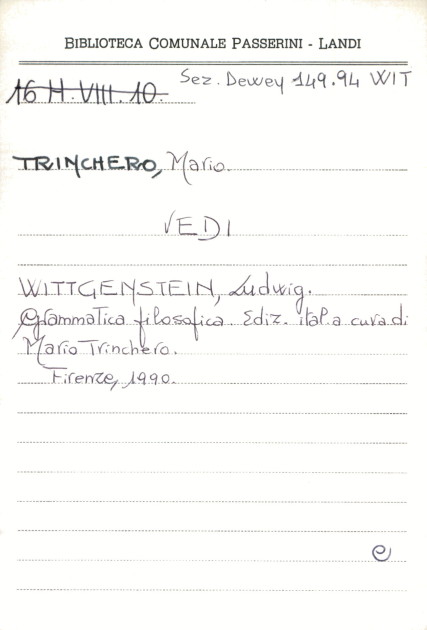 BIBLIOTECA COMUNALE PASSERINI - LANDI
Sez. Dewey 149.94 WIT
16 H. VIII. 10.
TRINCHERO, Mario.
VEDI
WITTGENSTEIN, Ludwig.
Grammatica filosofica. Ediz. ital. a cura di
Mario Trinchero.
Firenze, 1990.
e